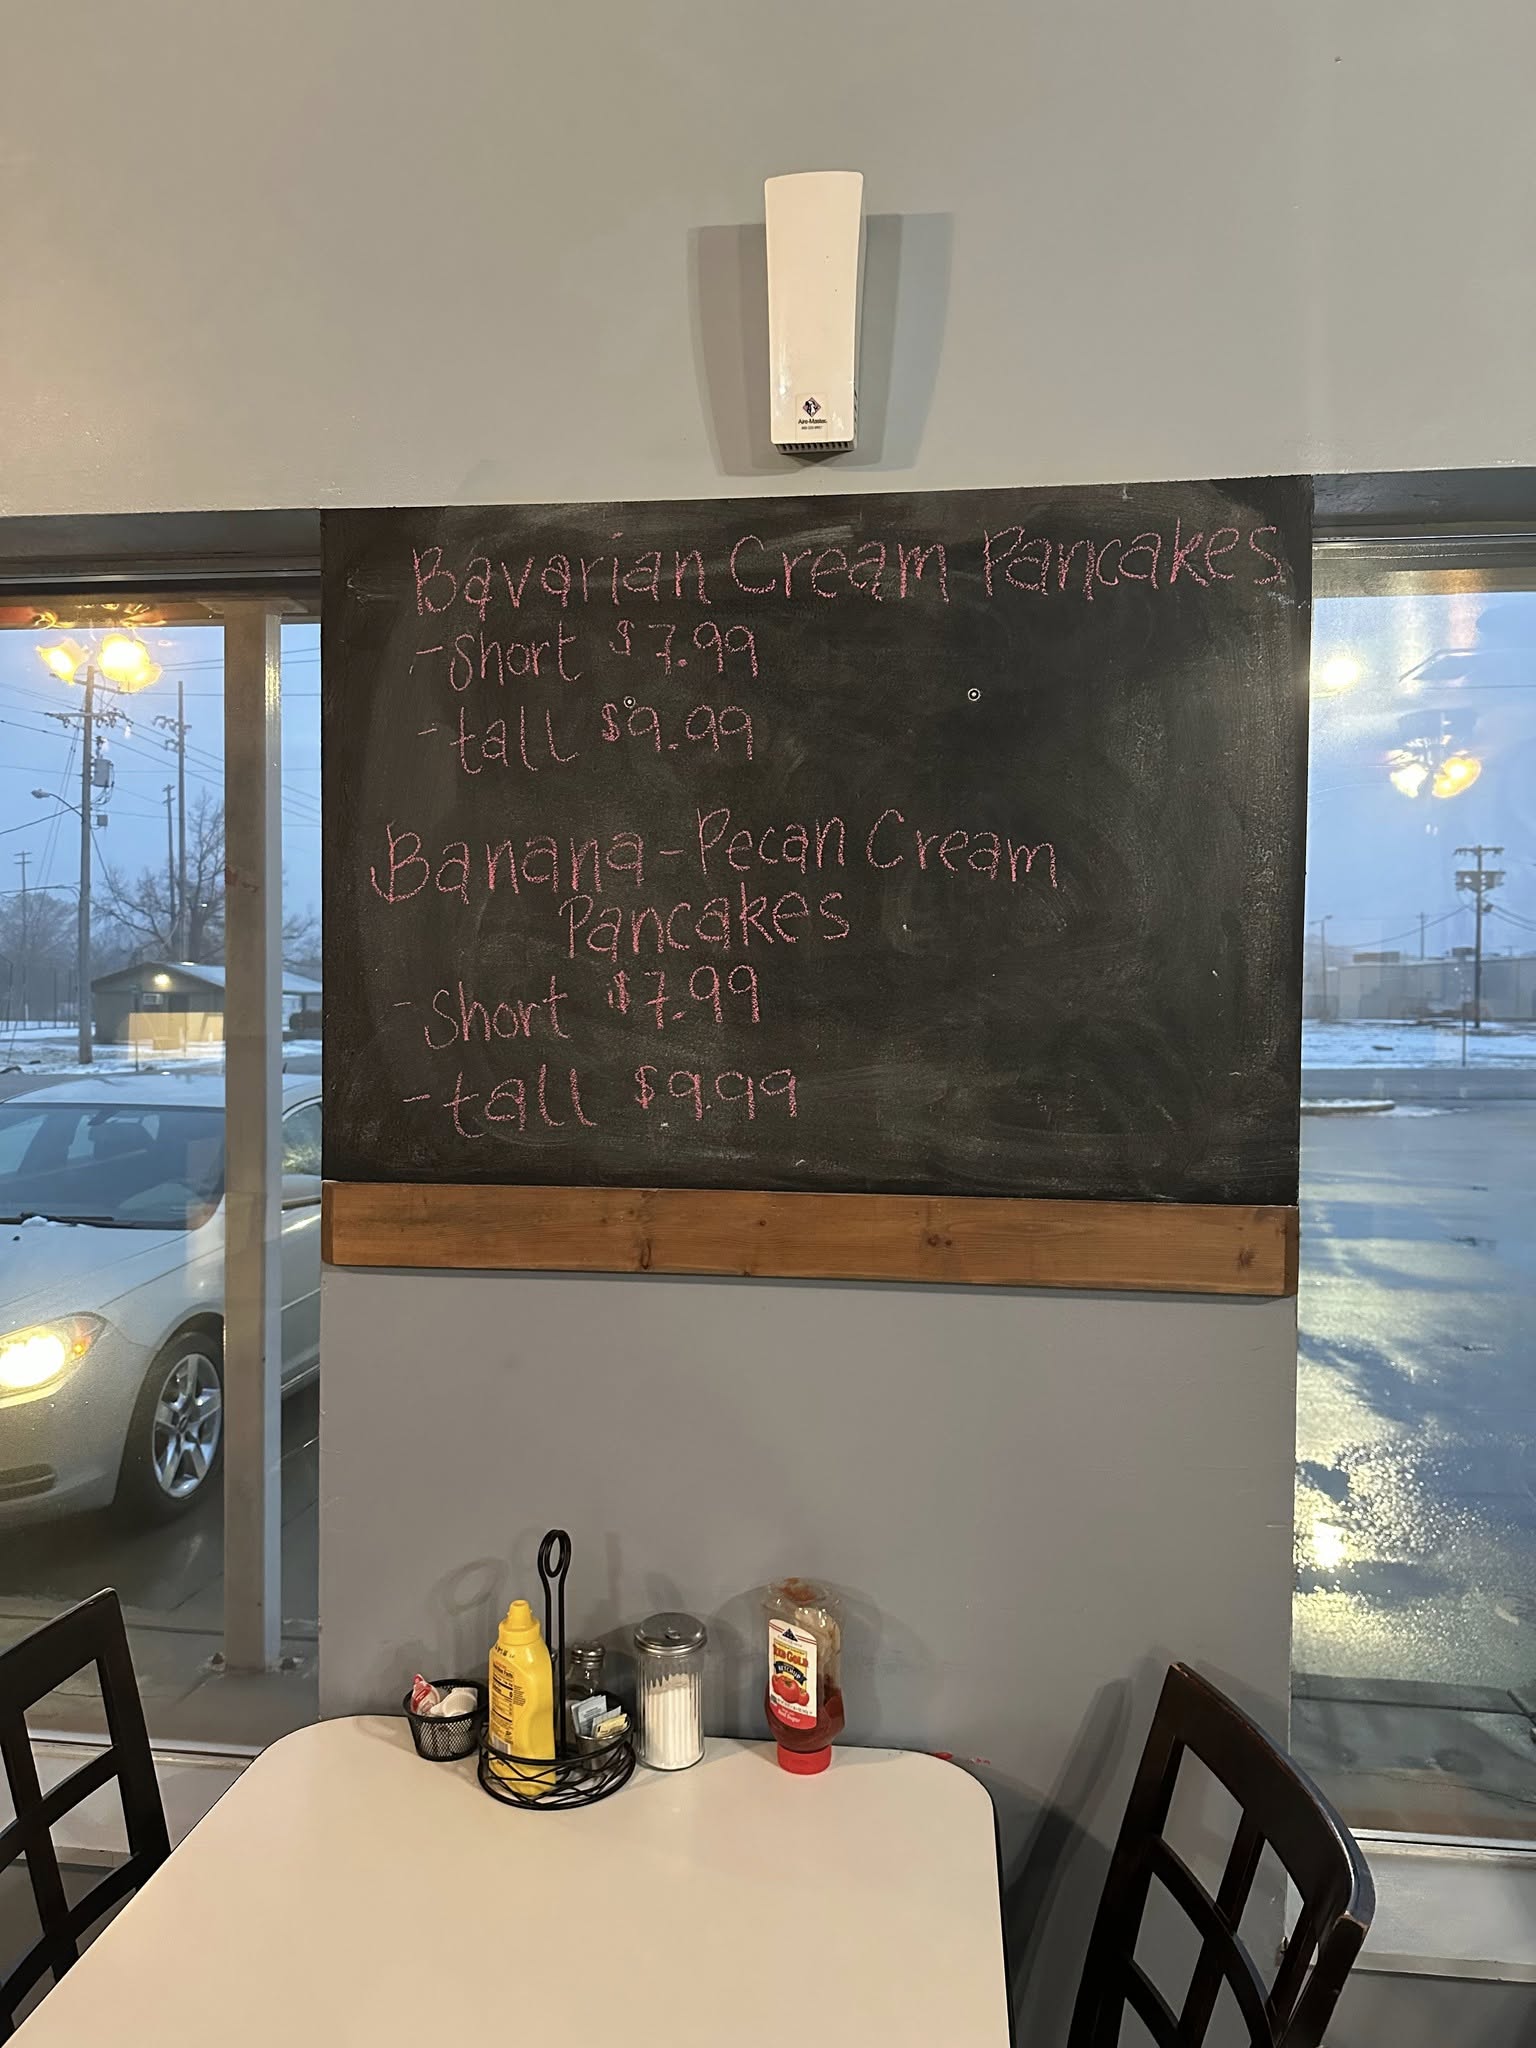 Aire-Master
Bavarian Cream Pancakes
- short $7.99
- tall $9.99
Banana-Pecan Cream
Pancakes
- short $7.99
- tall $9.99
RED GOLD
KETCHUP